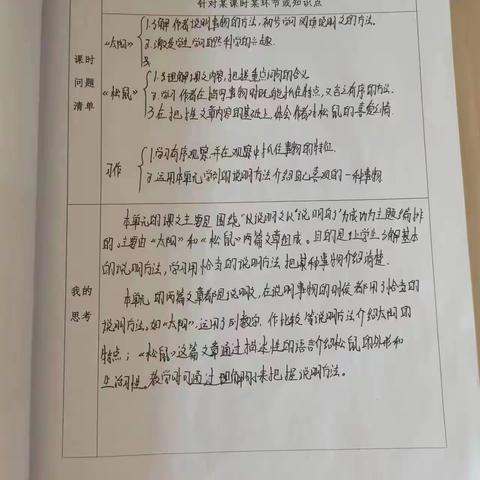 针对某课时某环节或知识点
课时
问题
清单
《太阳》
1.了解作者说明事物的方法,初步学习阅读说明文的方法.
2.激发学生学习自然科学的兴趣.
《松鼠》
1.理解课文内容,把握重点词句的含义
2.学习作者在描写事物时既能抓住特点,又言之有序的方法.
3.在把握文章内容的基础上,体会作者对松鼠的喜爱之情.
习作
1.学习有序观察,并在观察中抓住事物的特征.
2.运用本单元学到的说明方法介绍自己喜欢的一种事物
我的
思考
本单元的课文主要是围绕“以说明文以‘说明白了’为成功”为主题编排
的.主要由《太阳》和《松鼠》两篇文章组成。目的是让学生了解基本
的说明方法,学习用恰当的说明方法把某种事物介绍清楚.
本单元的两篇文章都是说明文,在说明事物的时候都用了恰当的
说明方法,如《太阳》,运用了列数字、作比较等说明方法介绍太阳的
特点;《松鼠》这篇文章通过描述性的语言介绍松鼠的外形和
生活习性。教学时可通过理解来把握说明方法。